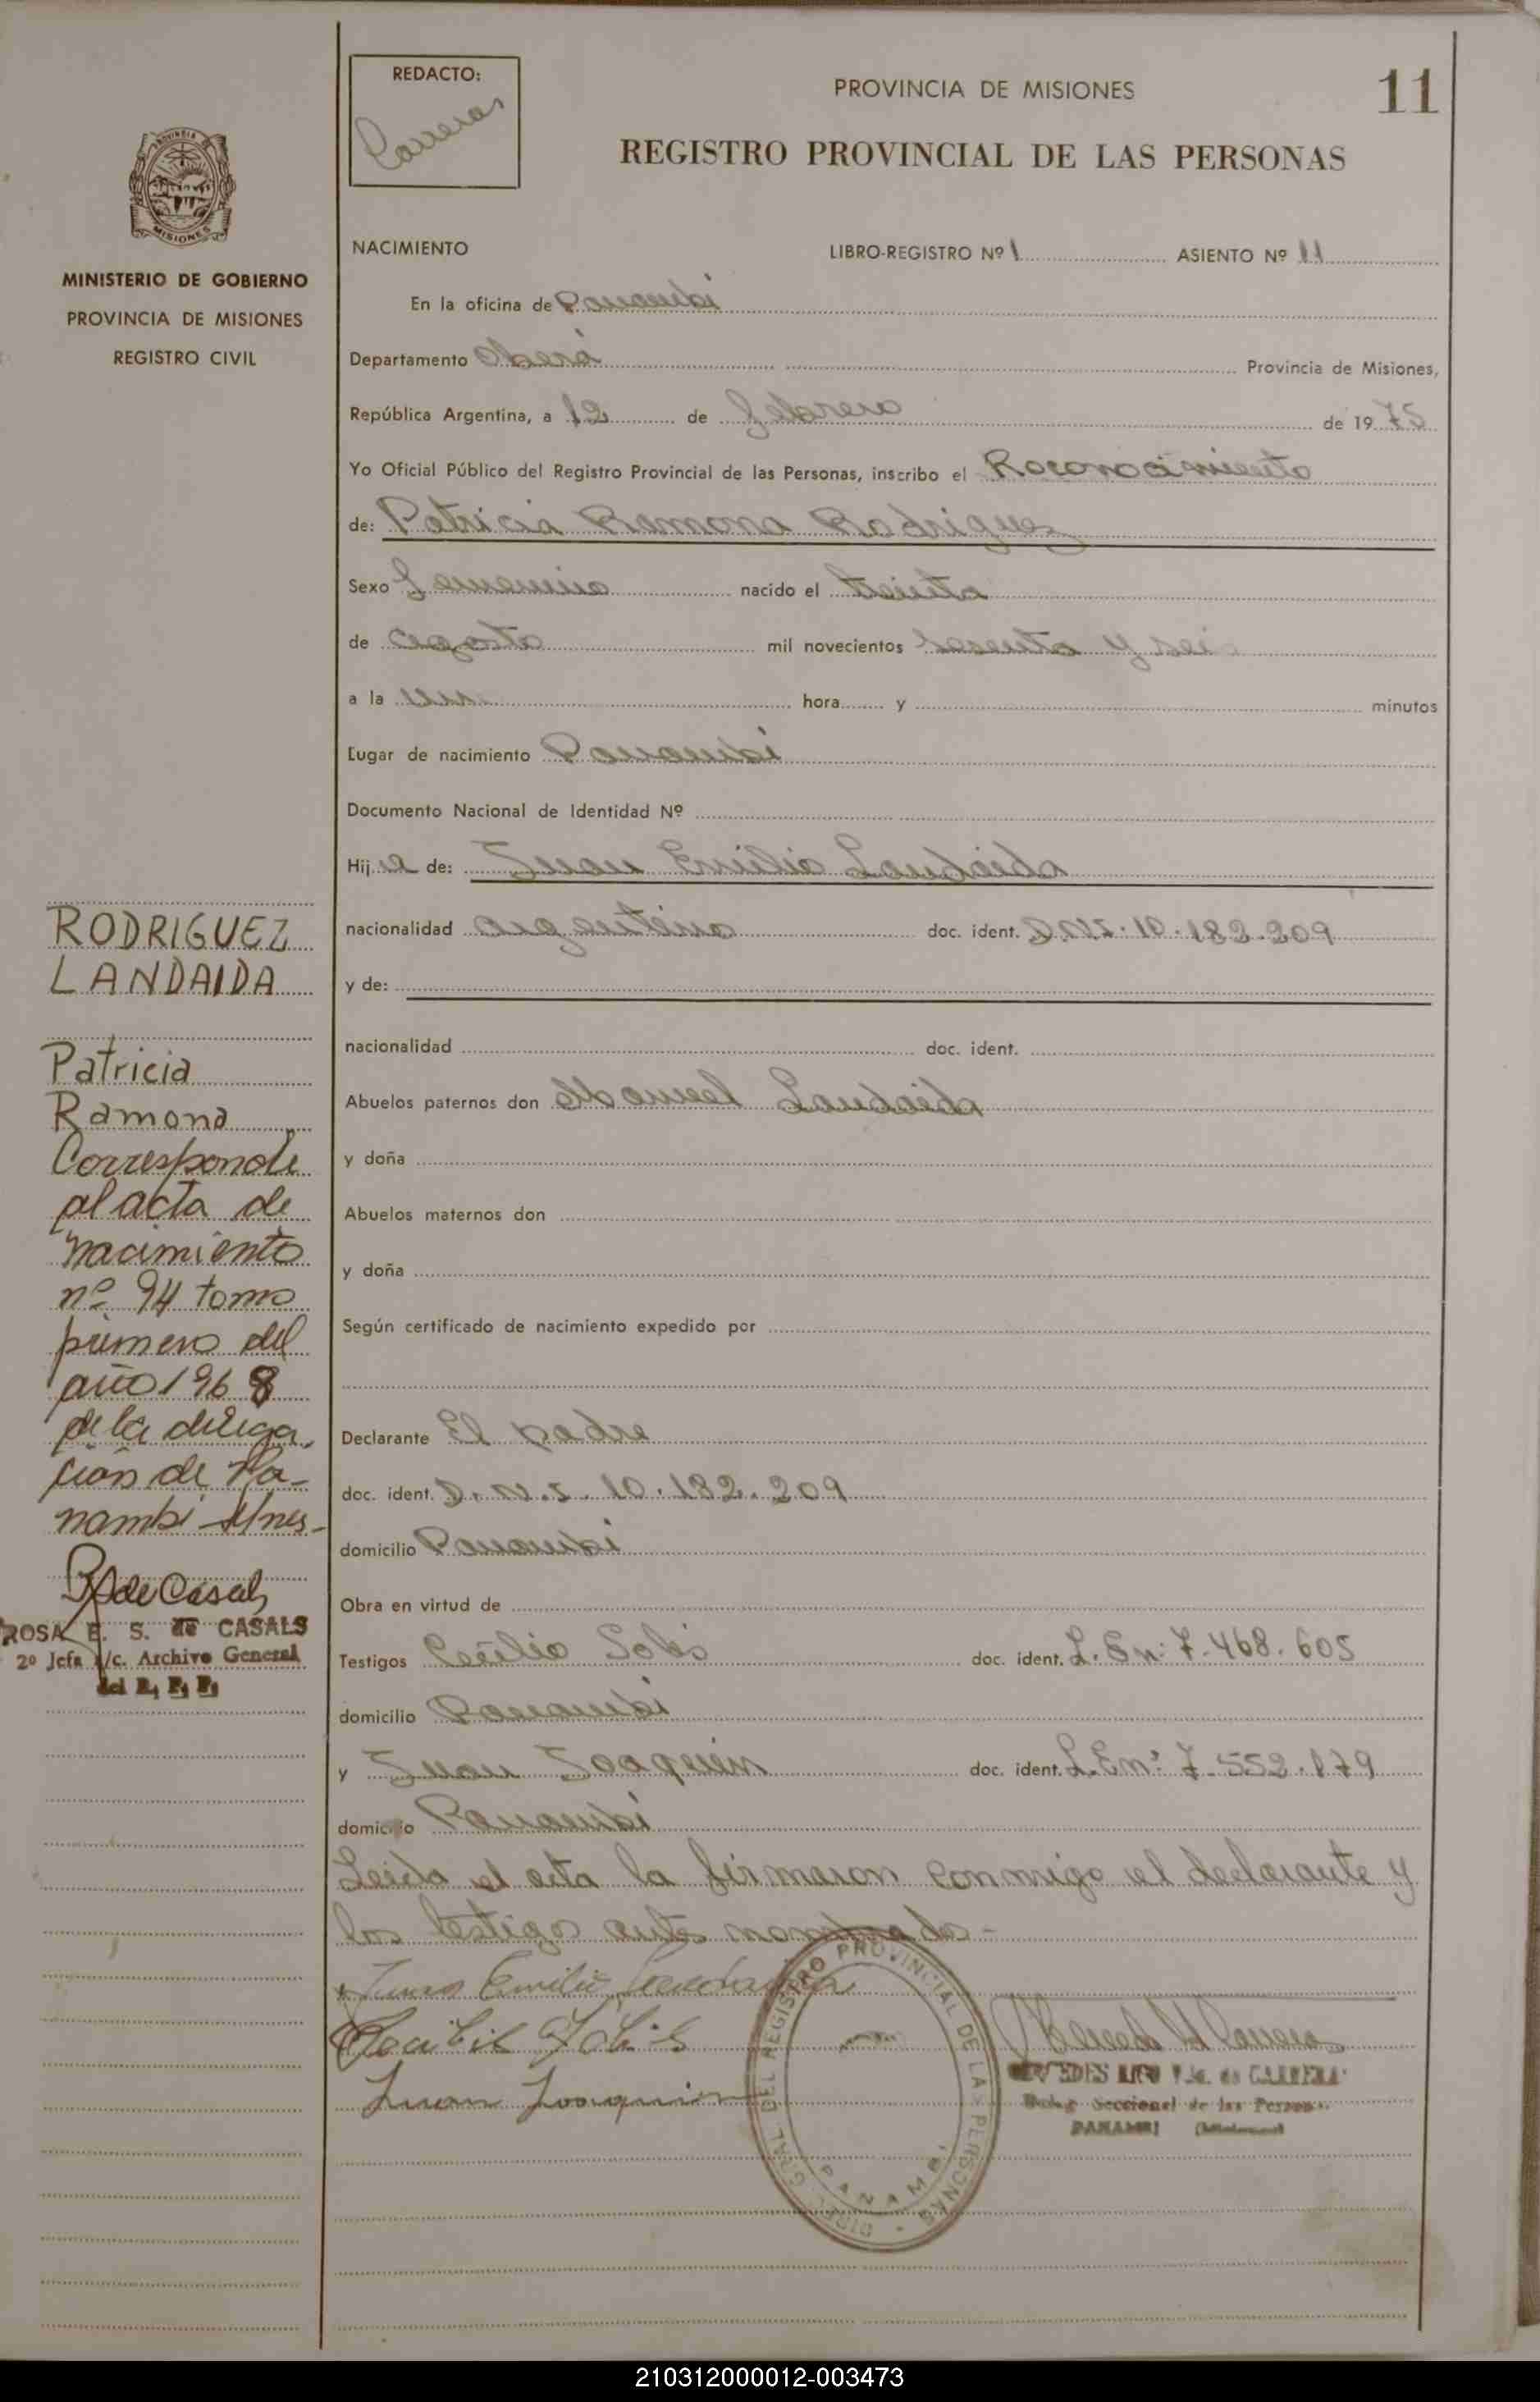 REDACTO:
Carreras
PROVINCIA DE MISIONES
11
REGISTRO PROVINCIAL DE LAS PERSONAS
PROVINCIA
MISIONES
MINISTERIO DE GOBIERNO
PROVINCIA DE MISIONES
REGISTRO CIVIL
NACIMIENTO LIBRO-REGISTRO Nº 1 ASIENTO Nº 11
En la oficina de Panambi
Departamento Oberá Provincia de Misiones,
República Argentina, a 12 de febrero de 1975
Yo Oficial Público del Registro Provincial de las Personas, inscribo el Reconocimiento
de: Patricia Ramona Rodriguez
Sexo femenino nacido el treinta
de agosto mil novecientos sesenta y sei
a la un hora y minutos
Lugar de nacimiento Panambi
Documento Nacional de Identidad Nº
Hija de: Juan Emilio Landaida
nacionalidad argentino doc. ident. D.N.I. 10.182.209
y de:
nacionalidad doc. ident.
Abuelos paternos don Manuel Landaida
y doña
Abuelos maternos don
y doña
Según certificado de nacimiento expedido por
Declarante El padre
doc. ident. D.N.I. 10.182.209
domicilio Panambi
Obra en virtud de
Testigos Cecilio doc. ident. L.En: 7.468.605
domicilio Panambi
y Juan Joaquin doc. ident. L.En: 7.552.179
domicilio Panambi
Leida el acta la firmaron conmigo el declarante y
los testigos antes nombrados-
Juan Emilio Landaida
Juan Joaquin
DIREC. GRAL. DEL REGISTRO PROVINCIAL DE LAS PERSONAS
PANAMBI
de CARRERA
Seccional de las Personas
PANAMBI (Misiones)
RODRIGUEZ
LANDAIDA
Patricia
Ramona
Corresponde
al acta de
nacimiento
nº 94 tomo
primero del
año 1968
de la delega
cion de Pa-
nambi Mnes-
R de Casals
ROSA E. S. de CASALS
2º Jefa a/c. Archivo General
del R. P. P.
210312000012-003473